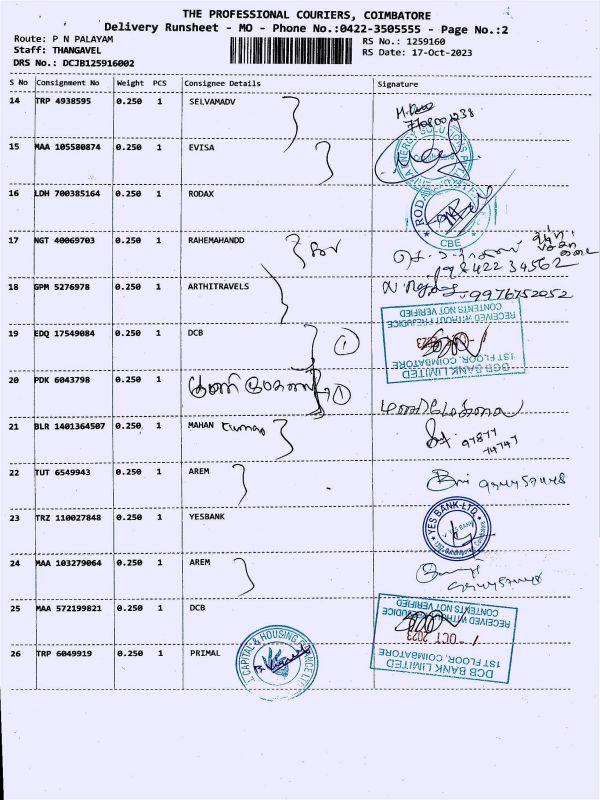 THE PROFESSIONAL COURIERS, COIMBATORE
Delivery Runsheet - MO - Phone No.:0422-3505555 - Page No.:2
Route: P N PALAYAM
RS No.: 1259160
Staff: THANGAVEL
RS Date: 17-Oct-2023
DRS No.: DCJB125916002
S No Consignment No Weight PCS Consignee Details Signature
14 TRP 4938595 0.250 1 SELVAMADV
15 MAA 105580874 0.250 1 EVISA
16 LDH 700385164 0.250 1 RODAX
RODAX
CBE
17 NGT 40069703 0.250 1 RAHEMAHANDD
9842234562
18 GPM 5276978 0.250 1 ARTHITRAVELS
9976752052
19 EDQ 17549084 0.250 1 DCB
①
DCB BANK LIMITED
1ST FLOOR, COIMBATORE
2023
RECEIVED WITHOUT PREJUDICE
CONTENTS NOT VERIFIED
20 PDK 6043798 0.250 1
①
21 BLR 1401364507 0.250 1 MAHAN Kumar
97877
74747
22 TUT 6549943 0.250 1 AREM
23 TRZ 110027848 0.250 1 YESBANK
YES BANK LTD.
YES BANK
24 MAA 103279064 0.250 1 AREM
25 MAA 572199821 0.250 1 DCB
DCB BANK LIMITED
1ST FLOOR, COIMBATORE
OCT 2023
RECEIVED WITHOUT PREJUDICE
CONTENTS NOT VERIFIED
26 TRP 6049919 0.250 1 PRIMAL
CAPITAL & HOUSING FINANCE LTD